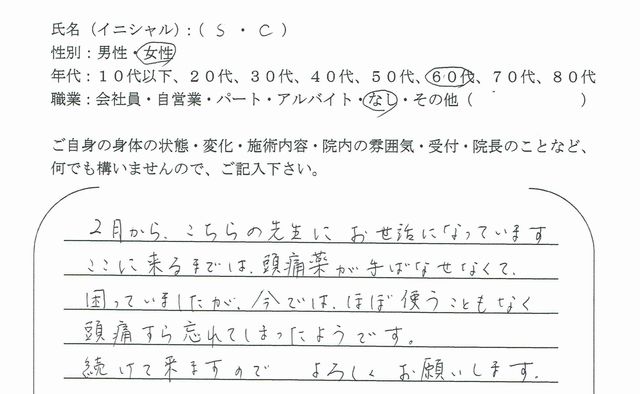 氏名（イニシャル）：（ S ・ C ）
性別：男性・女性
年代：１０代以下、２０代、３０代、４０代、５０代、６０代、７０代、８０代
職業：会社員・自営業・パート・アルバイト・なし・その他（　　　　　　）
ご自身の身体の状態・変化・施術内容・院内の雰囲気・受付・院長のことなど、
何でも構いませんので、ご記入下さい。
2月から、こちらの先生に お世話になっています
ここに来るまでは、頭痛薬が手ばなせなくて、
困っていましたが、今では、ほぼ使うこともなく
頭痛すら忘れてしまったようです。
続けて来ますので よろしく お願いします.